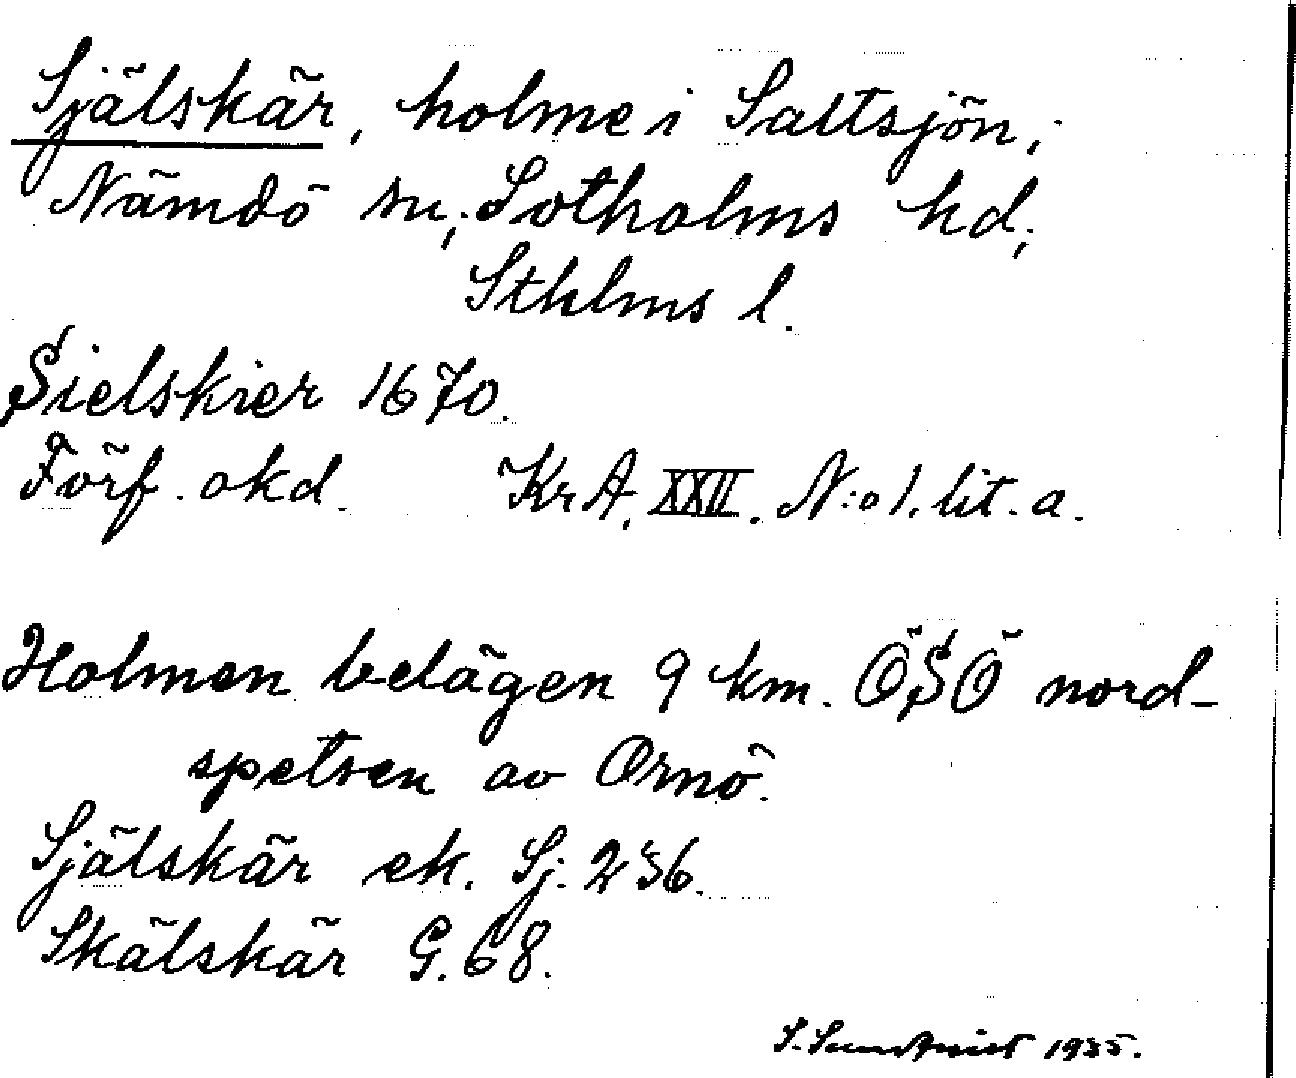 Själskär, holme i Saltsjön,
Nämdö sn, Sotholms hd,
Sthlms l.
Sielskier 1670.
Förf. okd. KrA. XXII. N:o 1. lit. a.
Holmen belägen 9 km. ÖSÖ nord-
spetsen av Ornö.
Själskär ek. Sj. 236.
Skälskär G. 68.
S. Sundqvist 1935.